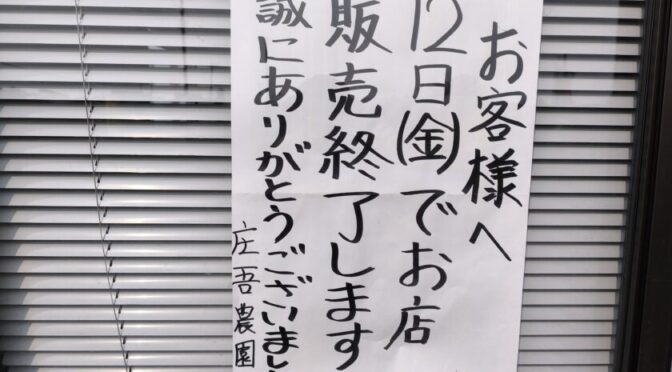 お客様へ
12日(金)でお店
販売終了します
誠にありがとうございまし
庄吾農園